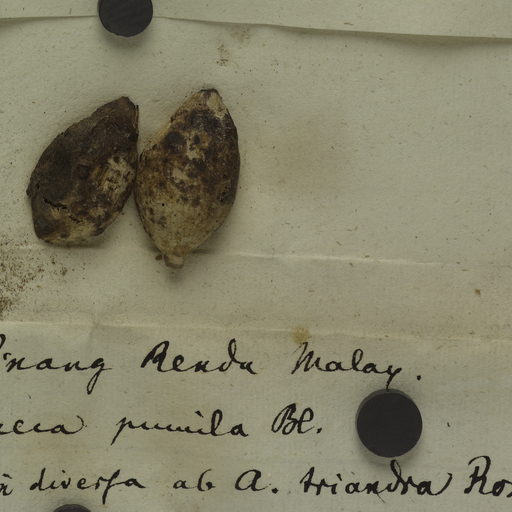 Pinang Rendu Malay.
pumila Bl.
diversa ab A. triandra Rox